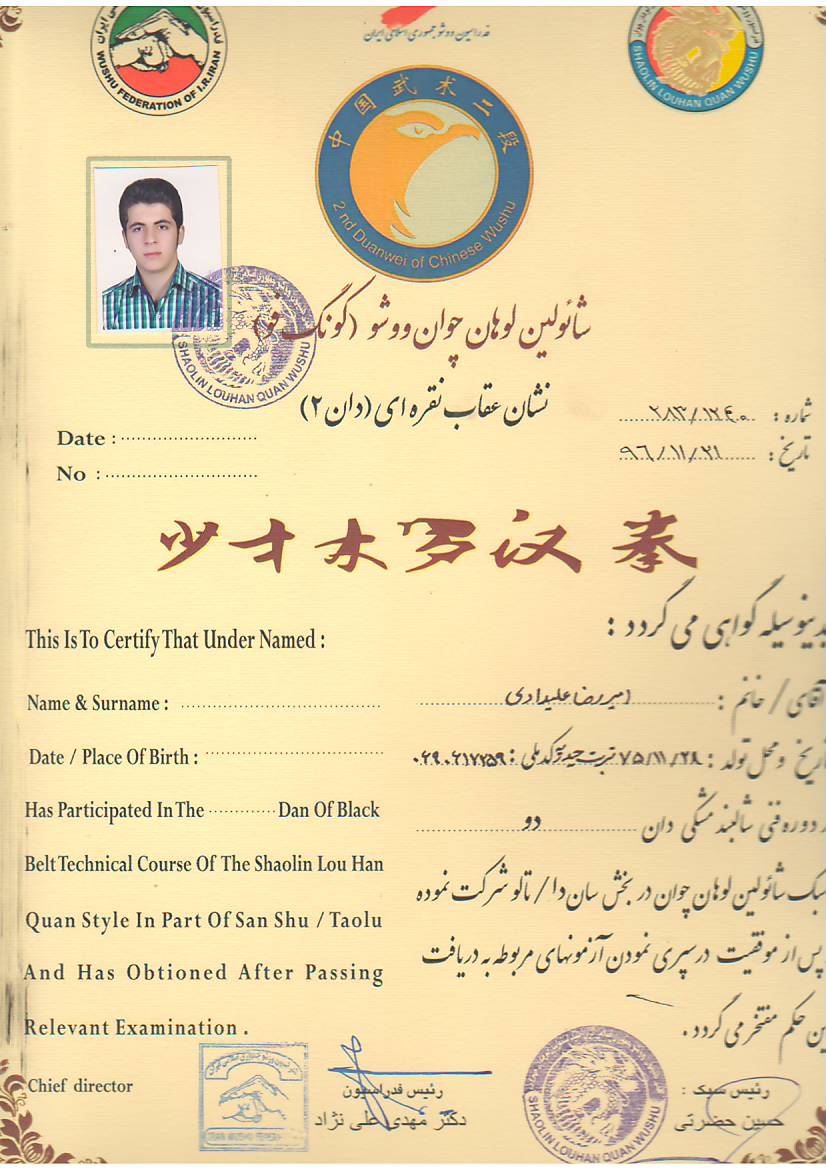 فدراسیون ووشو جمهوری اسلامی ایران
WUSHU FEDERATION OF I.R.IRAN
SHAOLIN LOUHAN QUAN WUSHU
中国武术二段
2 nd Duanwei of Chinese Wushu
شائولین لوهان چوان ووشو (کونگ فو)
SHAOLIN LOUHAN QUAN WUSHU
نشان عقاب نقره ای (دان ۲)
شماره : ۲۸۳/۱۲۴۰
Date :
تاریخ : ۹۶/۱۱/۲۱
No :
少林罗汉拳
بدینوسیله گواهی می گردد :
This Is To Certify That Under Named :
آقای / خانم : امیررضا علیدادی
Name & Surname :
تاریخ و محل تولد : ۷۵/۱۱/۲۸ تربت حیدریه کد ملی :
Date / Place Of Birth :
دوره فنی شالبند مشکی دان دو
Has Participated In The Dan Of Black
سبک شائولین لوهان چوان در بخش سان دا / تالو شرکت نموده
Belt Technical Course Of The Shaolin Lou Han
Quan Style In Part Of San Shu / Taolu
پس از موفقیت در سپری نمودن آزمونهای مربوطه به دریافت
And Has Obtioned After Passing
این حکم مفتخر می گردد .
Relevant Examination .
Chief director
رئیس فدراسیون
دکتر مهدی علی نژاد
رئیس سبک :
حسین حضرتی
SHAOLIN LOUHAN QUAN WUSHU